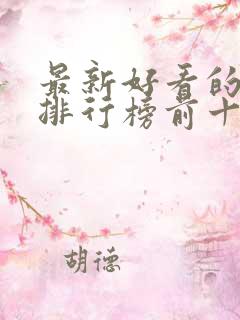 最新好看的
排行榜前十
胡德